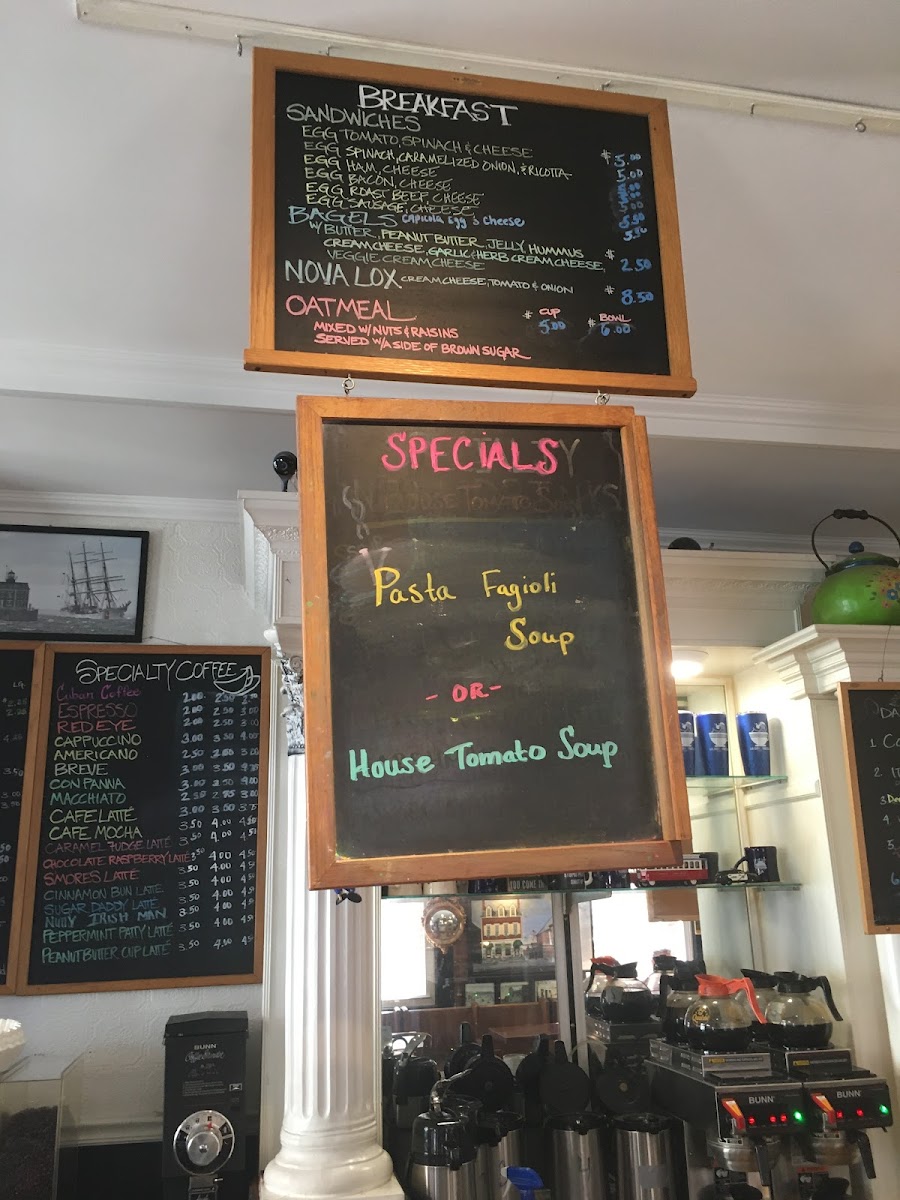 BREAKFAST
SANDWICHES
EGG TOMATO, SPINACH & CHEESE $5.00
EGG SPINACH, CARAMELIZED ONION, & RICOTTA 5.00
EGG HAM, CHEESE
EGG BACON, CHEESE
EGG ROAST BEEF, CHEESE
EGG SAUSAGE, CHEESE
BAGELS CAPICOLA Egg & Cheese
W/ BUTTER, PEANUT BUTTER, JELLY, HUMMUS
CREAM CHEESE, GARLIC & HERB CREAM CHEESE, $2.50
VEGGIE CREAM CHEESE
NOVA LOX CREAM CHEESE, TOMATO & ONION $8.50
OATMEAL $ CUP 5.00 $ BOWL 6.00
MIXED W/ NUTS & RAISINS
SERVED W/ A SIDE OF BROWN SUGAR
SPECIALS
Pasta Fagioli
Soup
- OR -
House Tomato Soup
SPECIALTY COFFEE
Cuban Coffee
ESPRESSO 2.00 2.50 3.00
RED EYE
CAPPUCCINO
AMERICANO
BREVE
CON PANNA
MACCHIATO
CAFE LATTÉ
CAFE MOCHA
CARAMEL FUDGE LATTÉ
CHOCOLATE RASPBERRY LATTÉ 3.50 4.00 4.50
SMORES LATTÉ 3.50 4.00 4.50
CINNAMON BUN LATTÉ 3.50 4.00 4.50
SUGAR DADDY LATTÉ 3.50 4.00 4.50
NUTTY IRISH MAN 3.50 4.00 4.50
PEPPERMINT PATTY LATTÉ 3.50 4.00 4.50
PEANUT BUTTER CUP LATTÉ 3.50 4.00 4.50
BUNN
BUNN
BUNN